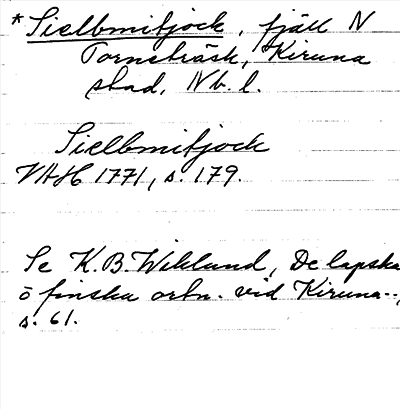 * Sielbmitjock, fjäll N
Torneträsk, Kiruna
stad, Nb. l.
Sielbmitjock
VAH 1771, s. 179.
Se K.B. Wiklund, De lapska
o finska ortn. vid Kiruna--,
s. 61.